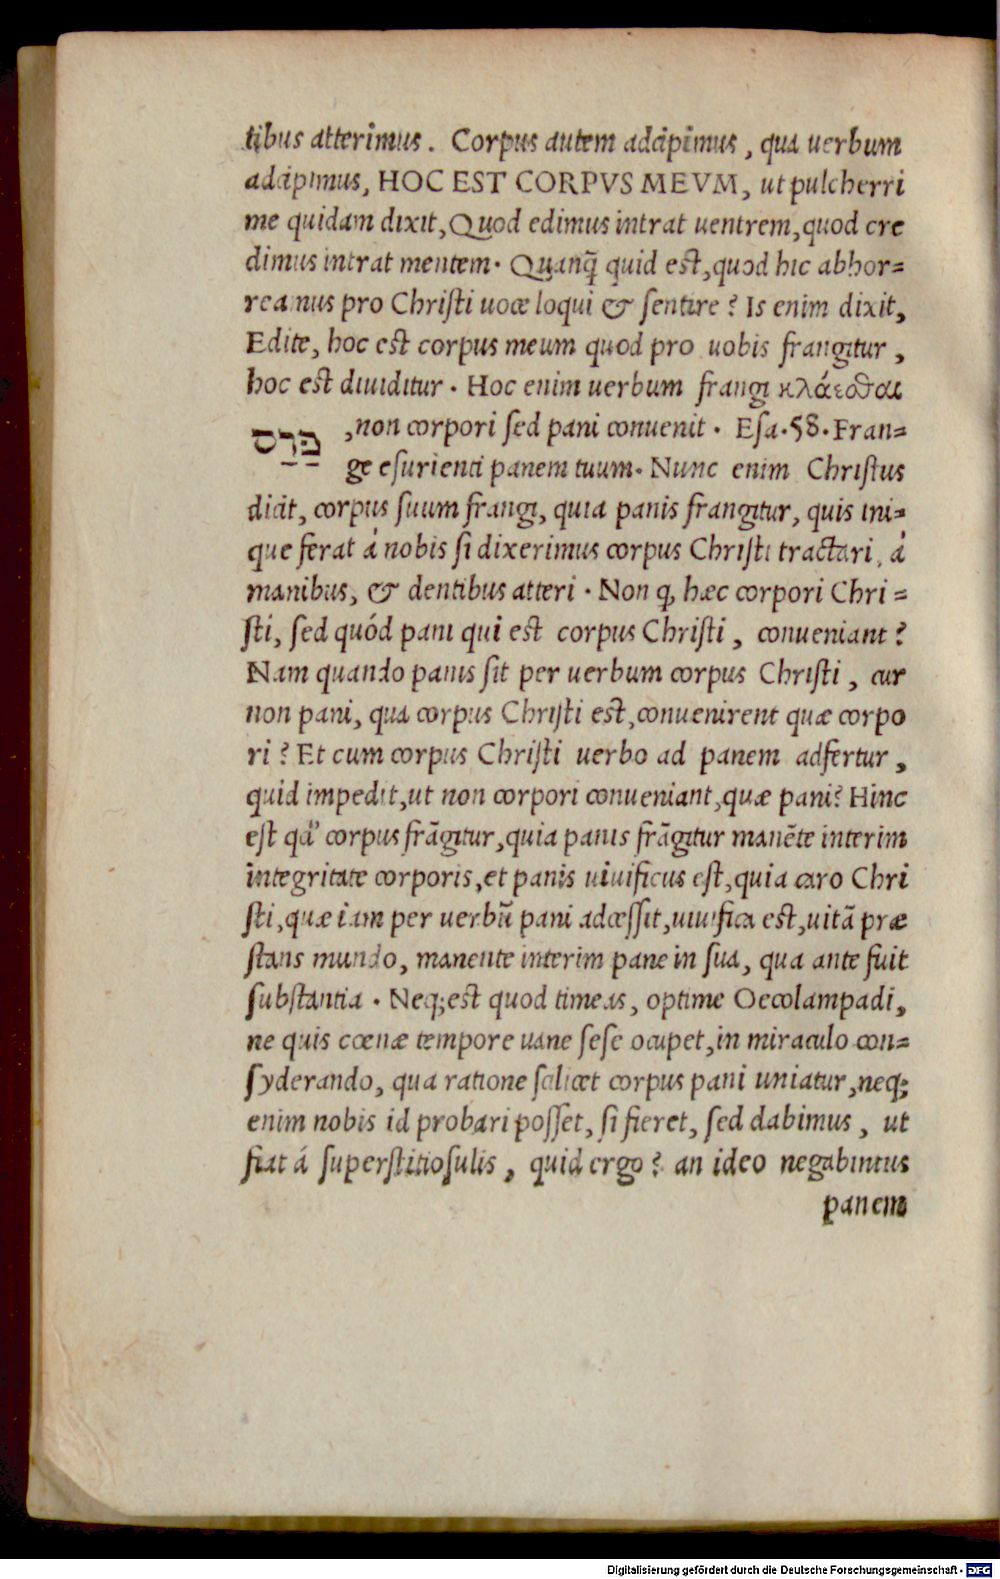 tibus atterimus. Corpus autem adcipimus, qua uerbum
adcipimus, HOC EST CORPVS MEVM, ut pulcherri
me quidam dixit, Quod edimus intrat uentrem, quod cre
dimus intrat mentem. Quanq̃ quid est, quod hic abhor=
reamus pro Christi uoce loqui & sentire? Is enim dixit,
Edite, hoc est corpus meum quod pro uobis frangitur,
hoc est diuiditur. Hoc enim uerbum frangi κλάεσθαι
פָּרַס ,non corpori sed pani conuenit. Esa.58. Fran=
ge esurienti panem tuum. Nunc enim Christus
dicit, corpus suum frangi, quia panis frangitur, quis ini=
que ferat á nobis si dixerimus corpus Christi tractari, á
manibus, & dentibus atteri. Non ꝙ hæc corpori Chri=
sti, sed quód pani qui est corpus Christi, conueniant?
Nam quando panis sit per uerbum corpus Christi, cur
non pani, qua corpus Christi est, conuenirent quæ corpo
ri? Et cum corpus Christi uerbo ad panem adfertur,
quid impedit, ut non corpori conueniant, quæ pani? Hinc
est qđ corpus frãgitur, quia panis frãgitur manẽte interim
integritate corporis, et panis uiuificus est, quia caro Chri
sti, quæ iam per uerbũ pani adcessit, uiuifica est, uitã præ
stans mundo, manente interim pane in sua, qua ante fuit
substantia. Neq; est quod timeas, optime Oecolampadi,
ne quis cœnæ tempore uane sese ocupet, in miraculo con=
syderando, qua ratione scilicet corpus pani uniatur, neq;
enim nobis id probari posset, si fieret, sed dabimus, ut
fiat á superstitiosulis, quid ergo? an ideo negabimus
panem
Digitalisierung gefördert durch die Deutsche Forschungsgemeinschaft - DFG